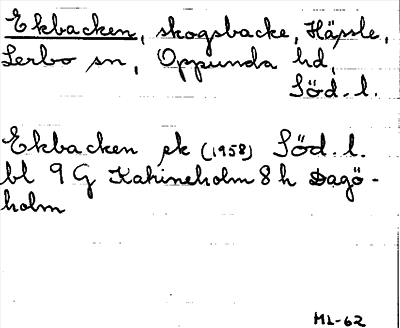 Ekbacken, skogsbacke, Hässle,
Lerbo sn, Oppunda hd,
Söd. l.
Ekbacken sk (1958) Söd. l.
bl 9 G Katrineholm 8 h Dagö-
holm
ML-62